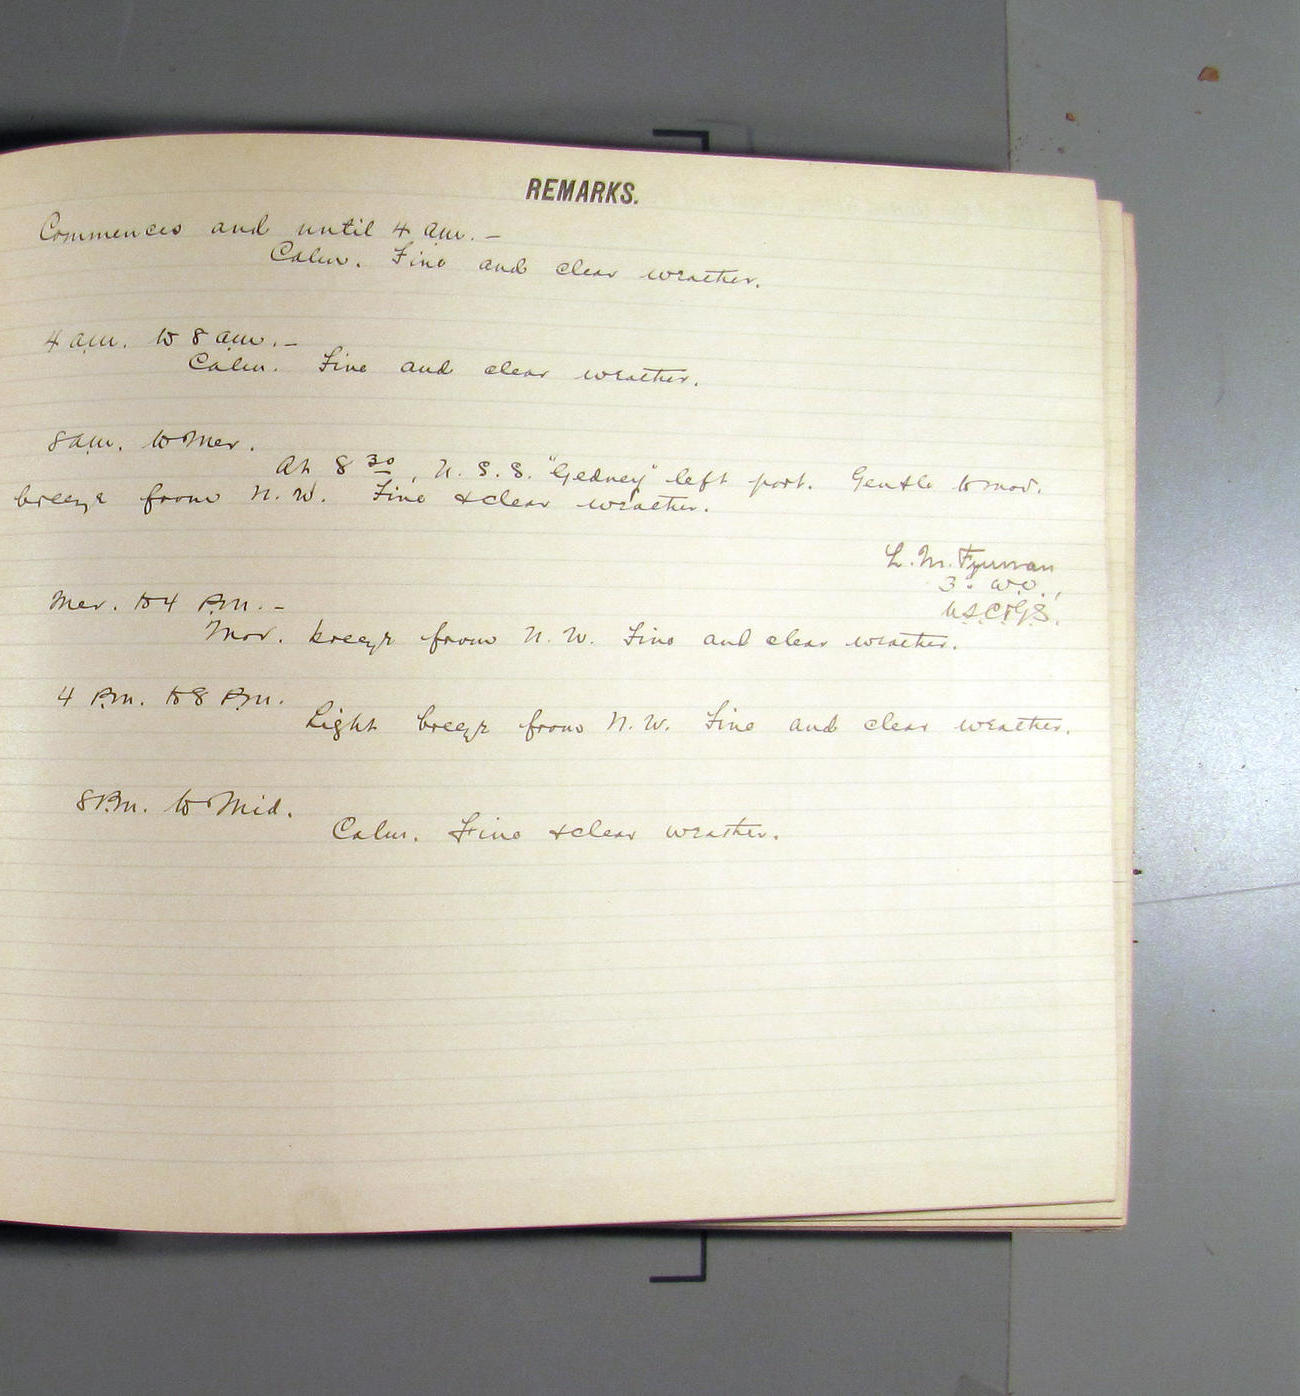 REMARKS.
Commences and until 4 am. –
Calm. Fine and clear weather.
4 a.m. to 8 a.m. –
Calm. Fine and clear weather.
8 a.m. to Mer.
At 8 30, U. S. S. "Gedney" left port. Gentle to mod.
breeze from N. W. Fine & clear weather.
L. M.
3d W.O.,
U.S.C.&G.S.
Mer. to 4 P.M. –
Mod. breeze from N. W. Fine and clear weather.
4 P.M. to 8 P.M.
Light breeze from N. W. Fine and clear weather.
8 P.M. to Mid.
Calm. Fine & clear weather.